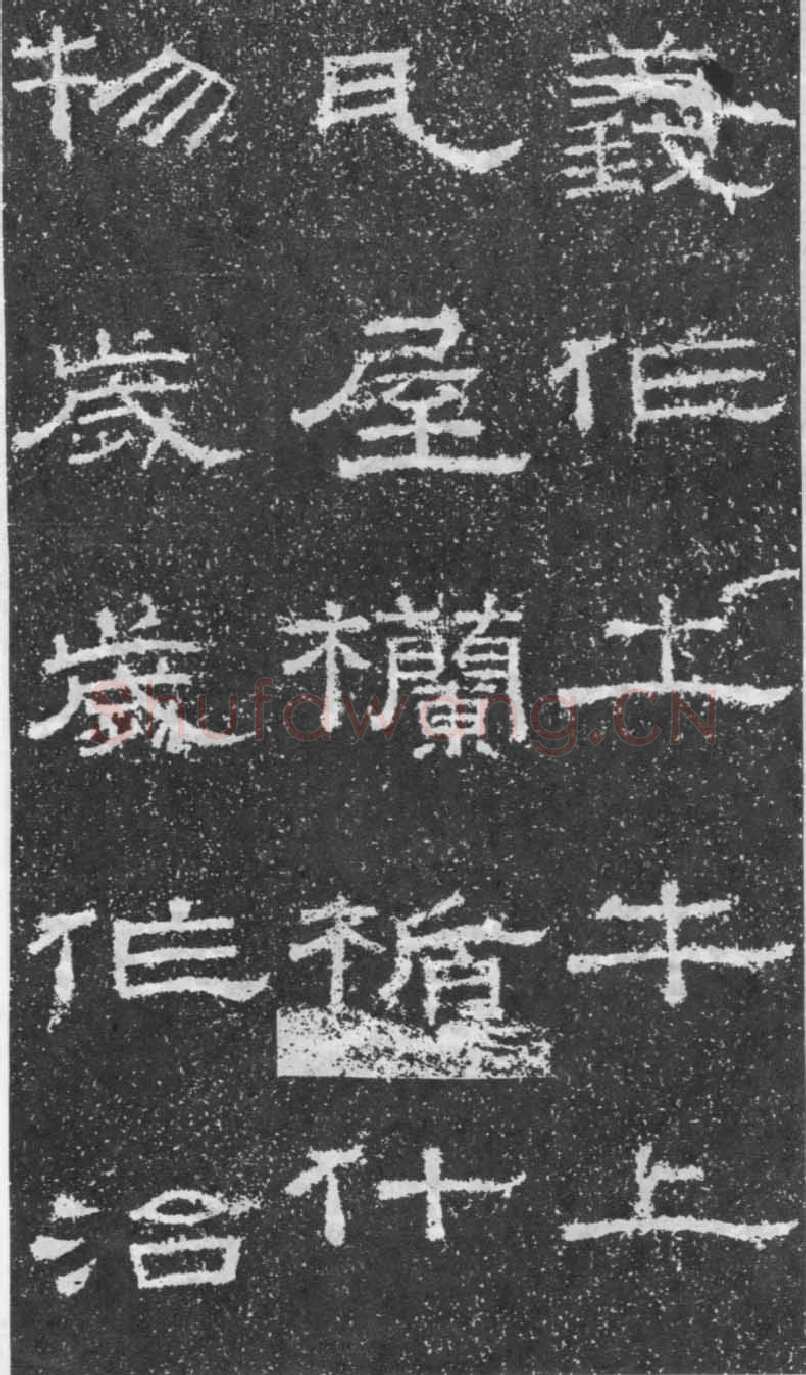 義作土牛上
瓦屋欄楯什
物歲歲作治
Shufawang.CN